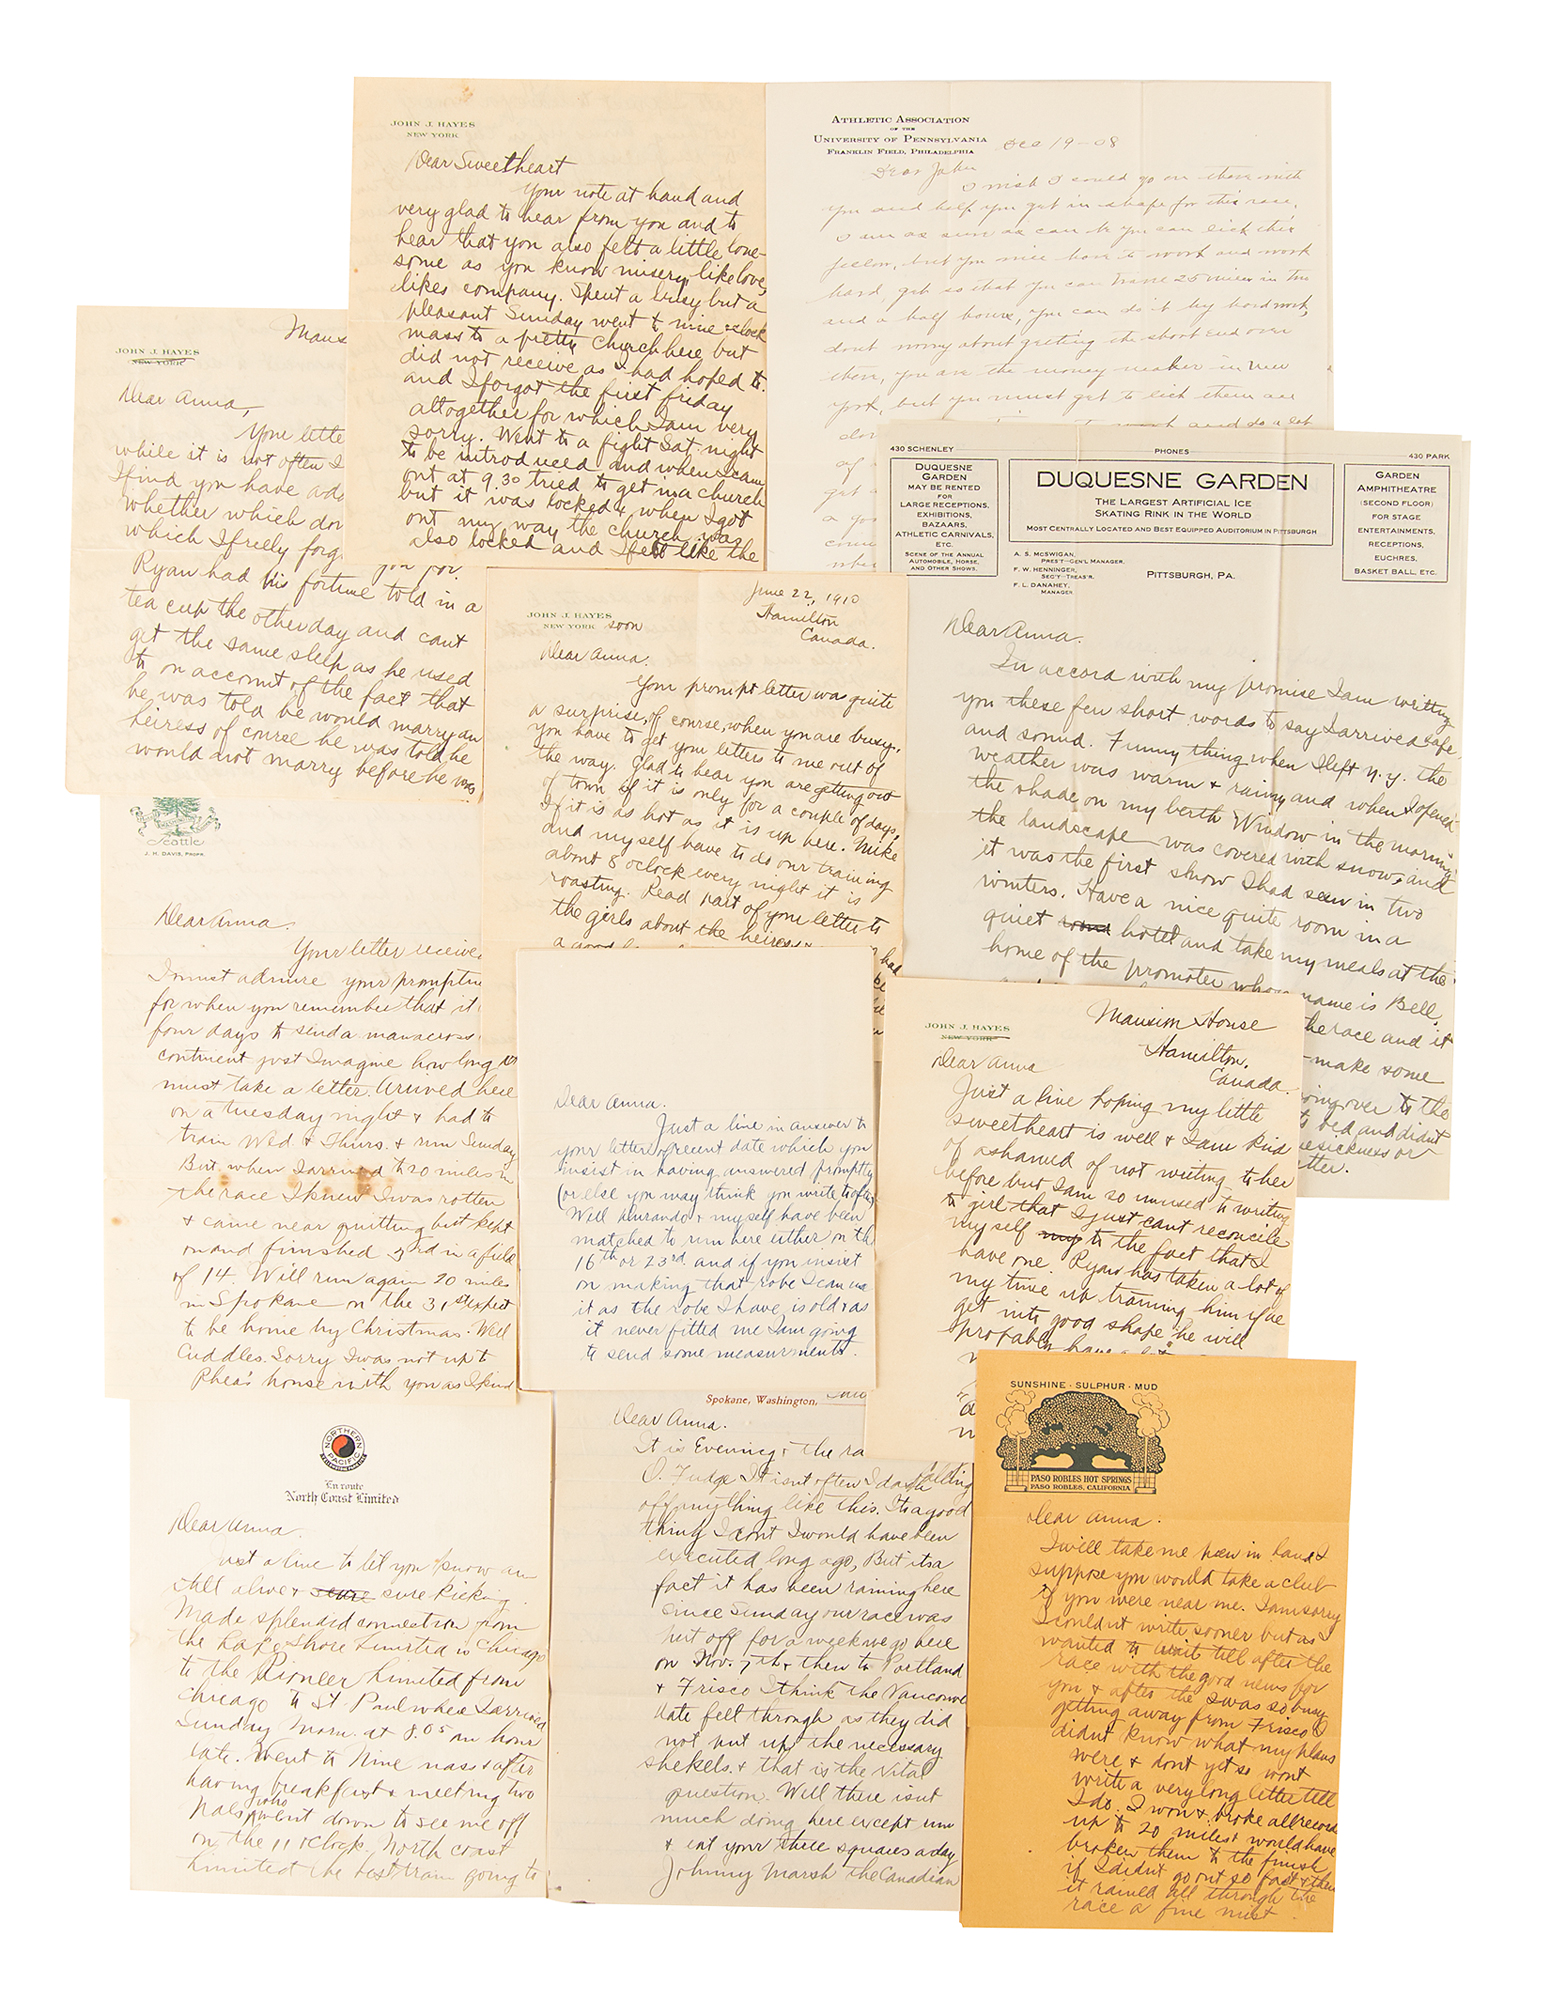 JOHN J. HAYES
NEW YORK
Dear Sweetheart
Your note at hand and
very glad to hear from you and to
hear that you also felt a little lone-
some as you know misery, like love,
likes company. Spent a busy but a
pleasant Sunday went to nine oclock
mass to a pretty church here but
did not receive as I had hoped to.
and I forgot the first friday
altogether for which I am very
sorry. Went to a fight Sat. night
to be introduced and when I came
out at 9.30 tried to get in a church
but it was locked & when I got
out my way the church was
also locked and I felt like the
ATHLETIC ASSOCIATION
OF THE
UNIVERSITY OF PENNSYLVANIA
FRANKLIN FIELD, PHILADELPHIA
Dec 19-08
Dear John
I wish I could go on there with
you and help you get in shape for this race.
I am as sure as can be you can lick this
fellow, but you will have to work and work
hard, get so that you can 25 miles in two
and a half hours, you can do it by hard work,
dont worry about getting the short end over
there, you are the money maker in New
York, but you must get to lick them all
and do a lot
Mans
JOHN J. HAYES
NEW YORK
Dear Anna,
Your lette
while it is not often I
I find you have add
whether which don
which I freely forg
you for.
Ryan had his fortune told in a
tea cup the other day and cant
get the same sleep as he used
to on account of the fact that
he was told he would marry an
heiress of course he was told he
would not marry before he was
430 SCHENLEY
PHONES
430 PARK
DUQUESNE
GARDEN
MAY BE RENTED
FOR
LARGE RECEPTIONS,
EXHIBITIONS,
BAZAARS,
ATHLETIC CARNIVALS,
ETC.
SCENE OF THE ANNUAL
AUTOMOBILE, HORSE,
AND OTHER SHOWS.
DUQUESNE GARDEN
THE LARGEST ARTIFICIAL ICE
SKATING RINK IN THE WORLD
MOST CENTRALLY LOCATED AND BEST EQUIPPED AUDITORIUM IN PITTSBURGH
GARDEN
AMPHITHEATRE
(SECOND FLOOR)
FOR STAGE
ENTERTAINMENTS,
RECEPTIONS,
EUCHRES,
BASKET BALL, ETC.
A. S. MCSWIGAN,
PRES'T-GEN'L MANAGER.
F. W. HENNINGER,
SEC'Y-TREAS'R.
F. L. DANAHEY,
MANAGER
PITTSBURGH, PA.
Dear Anna.
In accord with my promise I am writing
you these few short words to say I arrived safe
and sound. Funny thing when I left N.Y. the
weather was warm & rainy and when I opened
the shade on my berth Window in the morning
the landscape was covered with snow, and
it was the first snow I had seen in two
winters. Have a nice quite room in a
quiet hotel and take my meals at the
home of the promoter whose name is Bell,
the race and it
make some
going over to the
to bed and didnt
esickness or
tter.
JOHN J. HAYES
NEW YORK
soon
June 22, 1910
Hamilton
Canada.
Dear Anna.
Your prompt letter was quite
a surprise, of course, when you are busy.
you have to get your letters to me out of
the way. Glad to hear you are getting out
of town if it is only for a couple of days,
if it is as hot as it is up here. Mike
and myself have to do our training
about 8 oclock every night it is
roasting. Read part of your letter to
the girls about the heiress
Seattle
J. H. DAVIS, PROPR.
Dear Anna.
Your letter receive
I must admire your promptn
for when you remember that it
four days to send a man across
continent just I imagine how long it
must take a letter. Arrived here
on a tuesday night & had to
train Wed & Thurs. & run Sunday
But when I arrived to 20 miles in
the race I knew I was rotten
& came near quitting but kept
on and finished 3rd in a field
of 14. Will run again 20 miles
in Spokane on the 31st expect
to be home by Christmas. Well
Cuddles. Sorry I was not up to
Rhea's house with you as I kind
Dear Anna.
Just a line in answer to
your letter of recent date which you
insist in having answered promptly
(or else you may think you write to often)
Well Dorando & myself have been
matched to run here either on th
16th or 23rd and if you insist
on making that robe I can use
it as the robe I have is old & as
it never fitted me I am going
to send some measurments.
JOHN J. HAYES
NEW YORK
Mansion House
Hamilton,
Canada.
Dear Anna
Just a line hoping my little
sweetheart is well & I am kind
of ashamed of not writing to her
before but I am so unused to writing
to girl that I just cant reconcile
myself to the fact that I
have one. Ryan has taken a lot of
my time up training him if he
get into good shape he will
probably have a lot
NORTHERN PACIFIC
En route
North Coast Limited
Dear Anna.
Just a line to let you know am
still alive & sure kicking.
Made splendid connection from
the Lake Shore Limited in Chicago
to the Pioneer Limited from
Chicago to St. Paul where I arrived
Sunday Morn. at 8.05 an hour
late. Went to Nine mass after
having breakfast & meeting two
pals who went down to see me off
on the 11 o'clock. North Coast
Limited the best train going to
Spokane, Washington,
Dear Anna.
It is Evening & the ra
O. Fudge I it isnt often I dash
off anything like this. Its a good
thing I dont I would have been
executed long ago, But its a
fact it has been raining here
since Sunday our race was
put off for a week we go here
on Nov. 7th & then to Portland
& Frisco I think the Vancouver
date fell through as they did
not put up the necessary
shekels. & that is the Vital
question. Well there isnt
much doing here except run
& eat your three squares a day
Johnny Marsh the Canadian
SUNSHINE · SULPHUR · MUD
PASO ROBLES HOT SPRINGS
PASO ROBLES, CALIFORNIA
Dear Anna.
I will take me pen in hand &
suppose you would take a club
if you were near me. I am sorry
I couldnt write sooner but as I
wanted to wait till after the
race with the good news for
you & after the I was so busy
getting away from Frisco I
didnt know what my plans
were & dont yet so wont
write a very long letter till
I do. I won & broke all records
up to 20 miles & would have
broken them to the finish
if I didnt go out so fast & then
it rained all through the
race a fine mist.